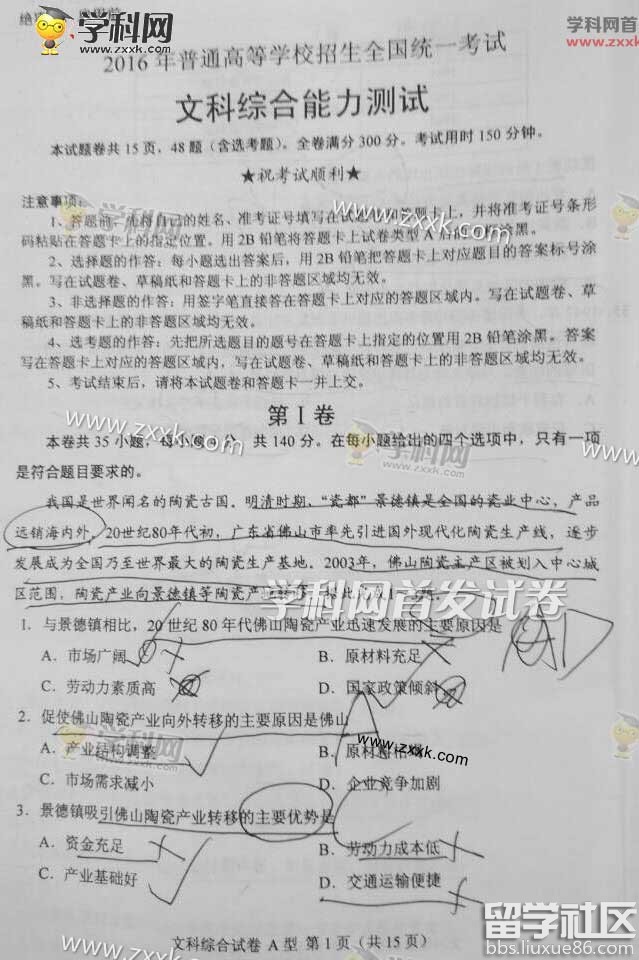 学科网
www.zxxk.com
学科网
www.zxxk.com
2016 年普通高等学校招生全国统一考试
文科综合能力测试
本试题卷共 15 页，48 题（含选考题）。全卷满分 300 分。考试用时 150 分钟。
★祝考试顺利★
注意事项：
1、答题前，先将自己的姓名、准考证号填写在试题卷和答题卡上，并将准考证号条形
码粘贴在答题卡上的指定位置。用 2B 铅笔将答题卡上试卷类型 A 后的方框涂黑。
2、选择题的作答：每小题选出答案后，用 2B 铅笔把答题卡上对应题目的答案标号涂
黑。写在试题卷、草稿纸和答题卡上的非答题区域均无效。
3、非选择题的作答：用签字笔直接答在答题卡上对应的答题区域内。写在试题卷、草
稿纸和答题卡上的非答题区域均无效。
4、选考题的作答：先把所选题目的题号在答题卡上指定的位置用 2B 铅笔涂黑。答案
写在答题卡上对应的答题区域内，写在试题卷、草稿纸和答题卡上的非答题区域均无效。
5、考试结束后，请将本试题卷和答题卡一并上交。
第 I 卷
本卷共 35 小题，每小题 分，共 140 分。在每小题给出的四个选项中，只有一项
是符合题目要求的。
我国是世界闻名的陶瓷古国。明清时期，“瓷都”景德镇是全国的瓷业中心，产品
远销海内外。20世纪80年代初，广东省佛山市率先引进国外现代化陶瓷生产线，逐步
发展成为全国乃至世界最大的陶瓷生产基地。2003年，佛山陶瓷主产区被划入中心城
区范围，陶瓷产业向景德镇等陶瓷产地转移。据此完成1～3题。
学科网首发试卷
1．与景德镇相比，20 世纪 80 年代佛山陶瓷产业迅速发展的主要原因是
A．市场广阔 B．原材料充足
C．劳动力素质高 D．国家政策倾斜
2．促使佛山陶瓷产业向外转移的主要原因是佛山
A．产业结构调整 B．原材料枯竭
C．市场需求减小 D．企业竞争加剧
3．景德镇吸引佛山陶瓷产业转移的主要优势是
A．资金充足 B．劳动力成本低
C．产业基础好 D．交通运输便捷
文科综合试卷 A 型 第 1 页（共 15 页）
www.zxxk.com
留学社区
bbs.liuxue86.com